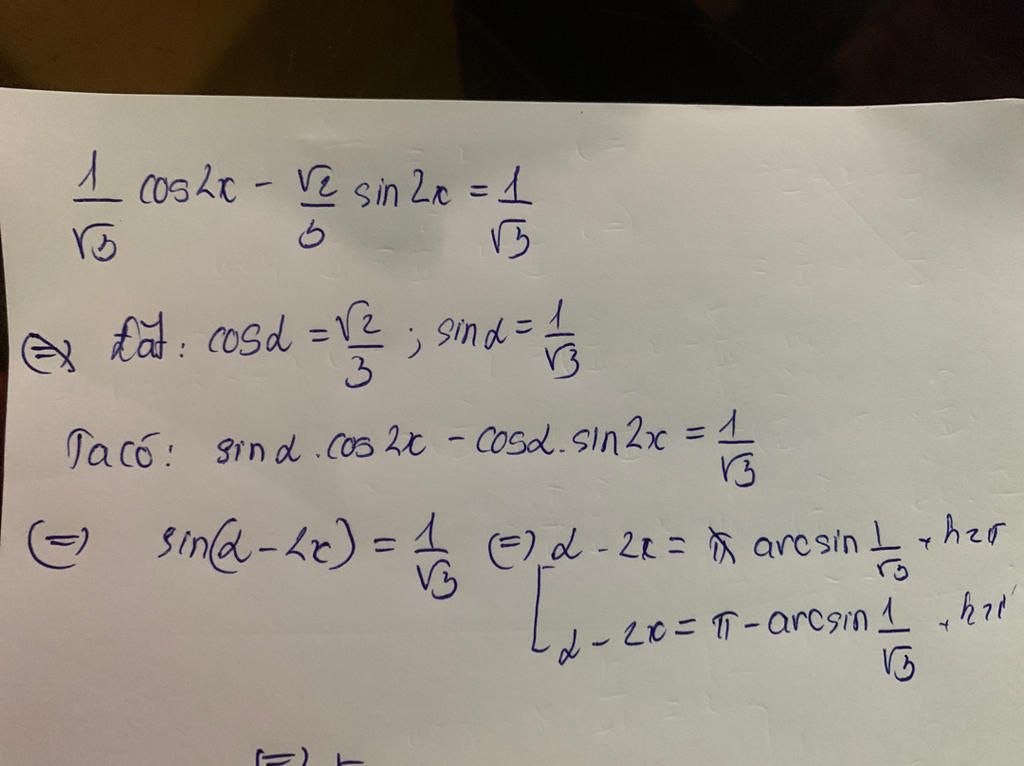 1/√3 cos2x - √2/3 sin2x = 1/√3
(=) Đặt: cosα = √2/3 ; sinα = 1/√3
Ta có: sinα.cos2x - cosα.sin2x = 1/√3
(=) sin(α - 2x) = 1/√3 (=) α - 2x = arcsin 1/√3 + k2π
α - 2x = π - arcsin 1/√3 + k2π
(=)